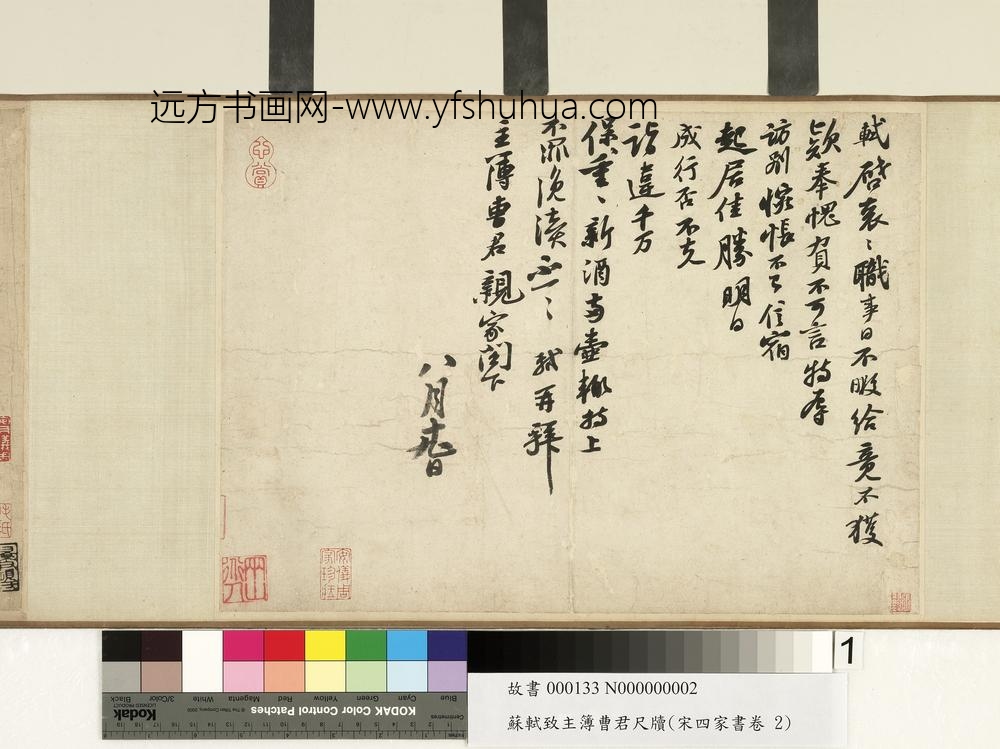 远方书画网-www.yfshuhua.com
軾啓衰〻職事日不暇給竟不獲
欵奉愧負不可言特辱
訪別惋悵不已信宿
起居佳勝明日
成行否不克
詣違千万
保重〻新酒兩壺輒持上
不罪浼瀆不一〻軾再拜
主簿曹君親家閤下
八月
日
KODAK Color Control Patches
Blue
Cyan
Green
Yellow
Red
Magenta
White
3/Color
Black
Kodak
Centimetres
Inches
1
故書 000133 N000000002
蘇軾致主簿曹君尺牘(宋四家書卷 2)